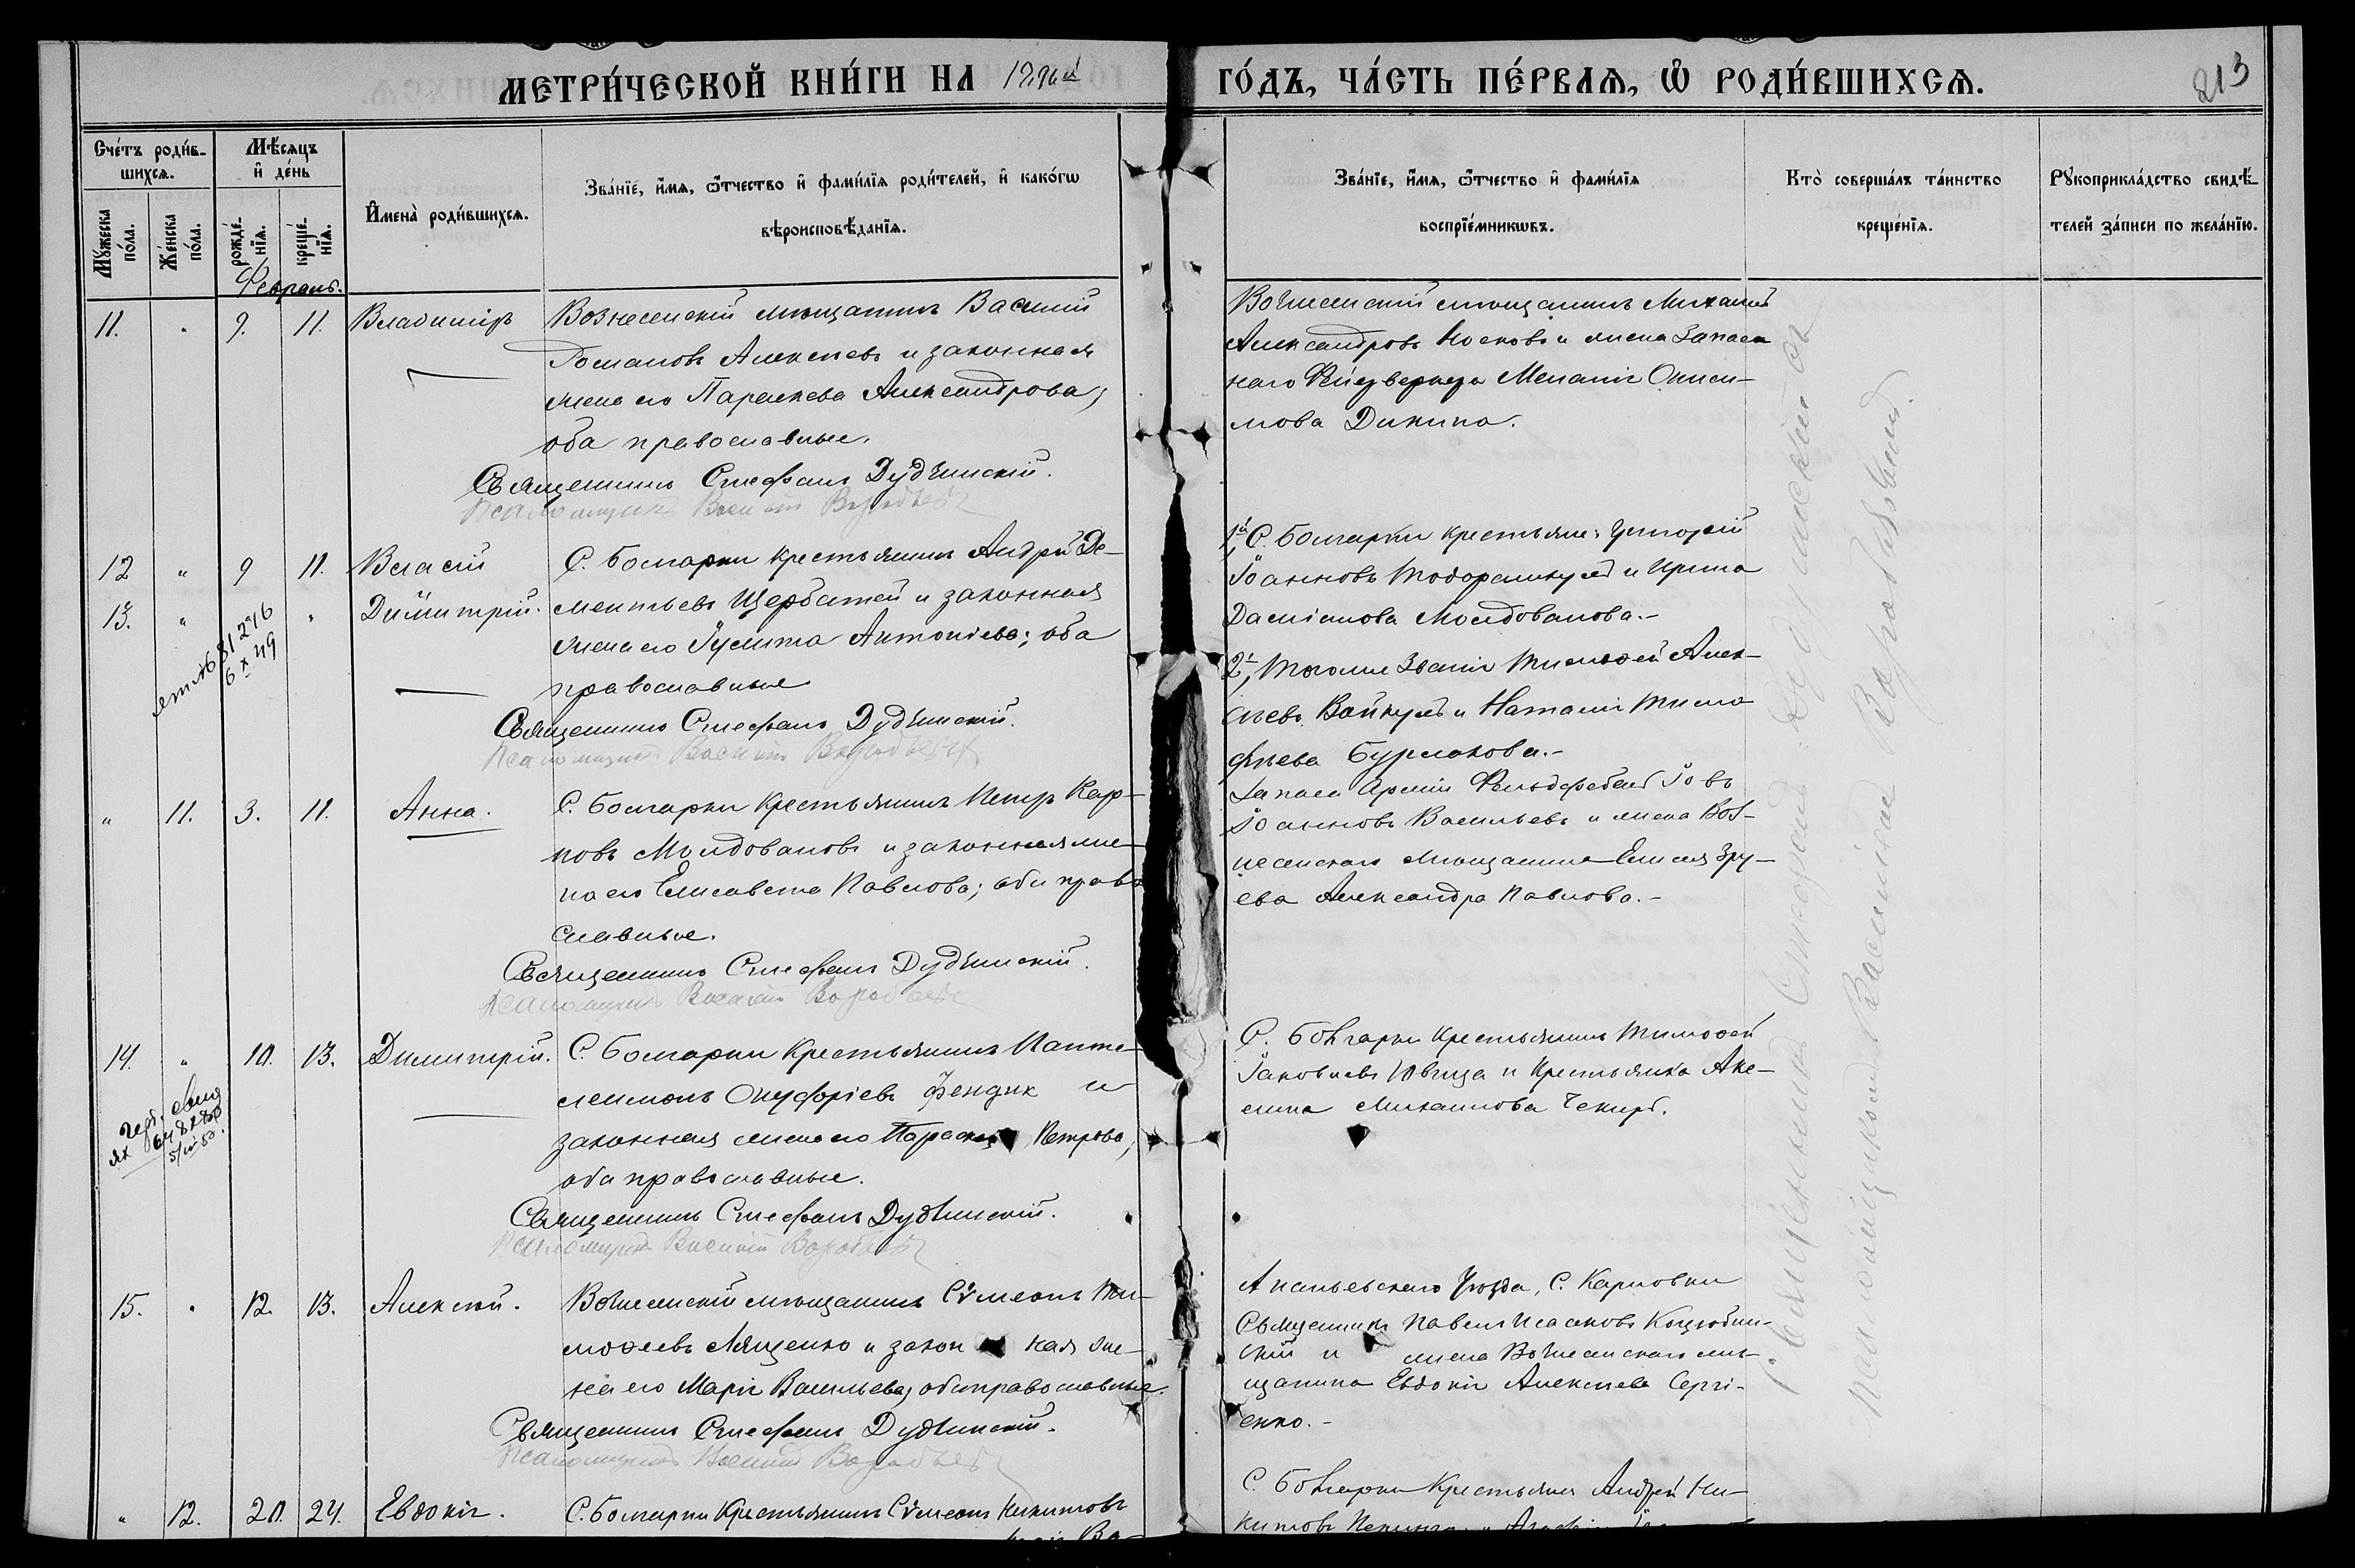 МЕТРИ́ЧЕСКОЙ КНИ́ГИ НА 1896й ГО́ДЪ, ЧА́СТЬ ПЕ́РВАѦ, Ѽ РОДИ́ВШИХСѦ.
213
Сче́тъ роди́в-
шихсѧ.
Мѣ́сѧцъ
и҆ де́нь
Мꙋ́жеска
по́ла.
Же́нска
по́ла.
рожде́-
нїѧ.
креще́-
нїѧ.
И҆мена̀ роди́вшихсѧ.
Зва́нїе, и҆́мѧ, ѻ҆́тчество и҆ фами́лїѧ роди́телей, и҆ како́гѡ
вѣроисповѣ́данїѧ.
Зва́нїе, и҆́мѧ, ѻ҆́тчество и҆ фами́лїѧ
воспрїе́мникѡвъ.
Кто̀ соверша́лъ та́инство
креще́нїѧ.
Рꙋкоприкла́дство свидѣ́-
телей за́писи по жела́нїю.
Февраль.
11. " 9. 11. Владимiръ
Вознесенскiй мѣщанинъ Василiй
Романовъ Алексѣевъ и законная
жена его Параскева Александрова,
оба православные.
Священникъ Стефанъ Дудчинскiй.
Псаломщикъ Василiй Воробьевъ
Вознесенскiй мѣщанинъ Михаилъ
Александровъ Носковъ и жена запас
наго Фейерверкера Меланiя Описи-
мова Дикина.
12 " 9 11. Власiй
13. " " Димитрiй.
С. Болгарки крестьянинъ Андрей Де-
ментьевъ Щербатей и законная
жена его Iулита Антонiева; оба
православные
Священникъ Стефанъ Дудчинскiй.
Псаломщикъ Василiй Воробьевъ
1й, С. Болгарки крестьяне: Григорiй
Iоанновъ и Ирина
Дамiанова Молдованова.-
2й, Того же званiя Тимофей Алек-
сѣевъ Войкулъ и Наталiя Тимо
фѣева Бурлакова.-
" 11. 3. 11. Анна.
С. Болгарки крестьянинъ Петръ Кар-
повъ Молдовановъ и законная же-
на его Елисавета Павлова; оба право
славные.
Священникъ Стефанъ Дудчинскiй.
Псаломщикъ Василiй Воробьевъ
Запаса Армiи Фельдфебель Iовъ
Iоанновъ Васильевъ и жена Воз-
несенскаго мѣщанина Елисея Зру-
ева Александра Павлова.-
14. " 10. 13. Димитрiй.
С. Болгарки крестьянинъ Панте-
леимонъ Онуфрiевъ Фендик и
законная жена его Параскева Петрова,
оба православные.
Священникъ Стефанъ Дудчинскiй.
Псаломщикъ Василiй Воробьевъ
С. Болгарки крестьянинъ Тимофей
Iаковлевъ Ювица и крестьянка Аке-
лина Михаилова Чекиръ.
15. " 12. 13. Алексѣй.
Вознесенскiй мѣщанинъ Сѵмеонъ Ти-
мофеевъ Лященко и законная же-
на его Марiя Васильева, оба православные.
Священникъ Стефанъ Дудчинскiй.
Псаломщикъ Василiй Воробьевъ
Ананьевскаго уѣзда, С. Карповки
Священникъ Павелъ Исааковъ Коцюбин-
скiй и жена Вознесенскаго мѣ-
щанина Евдокiя Алексѣева Сергi-
енко.-
" 12. 20. 24. Евдокiя.
С. Болгарки крестьянинъ Сѵмеонъ Никитовъ
С. Болгарки крестьяне Андрей Ни-
китовъ
Священникъ Стефанъ Дудчинскiй съ
псаломщикомъ Василiемъ Воробьевымъ.